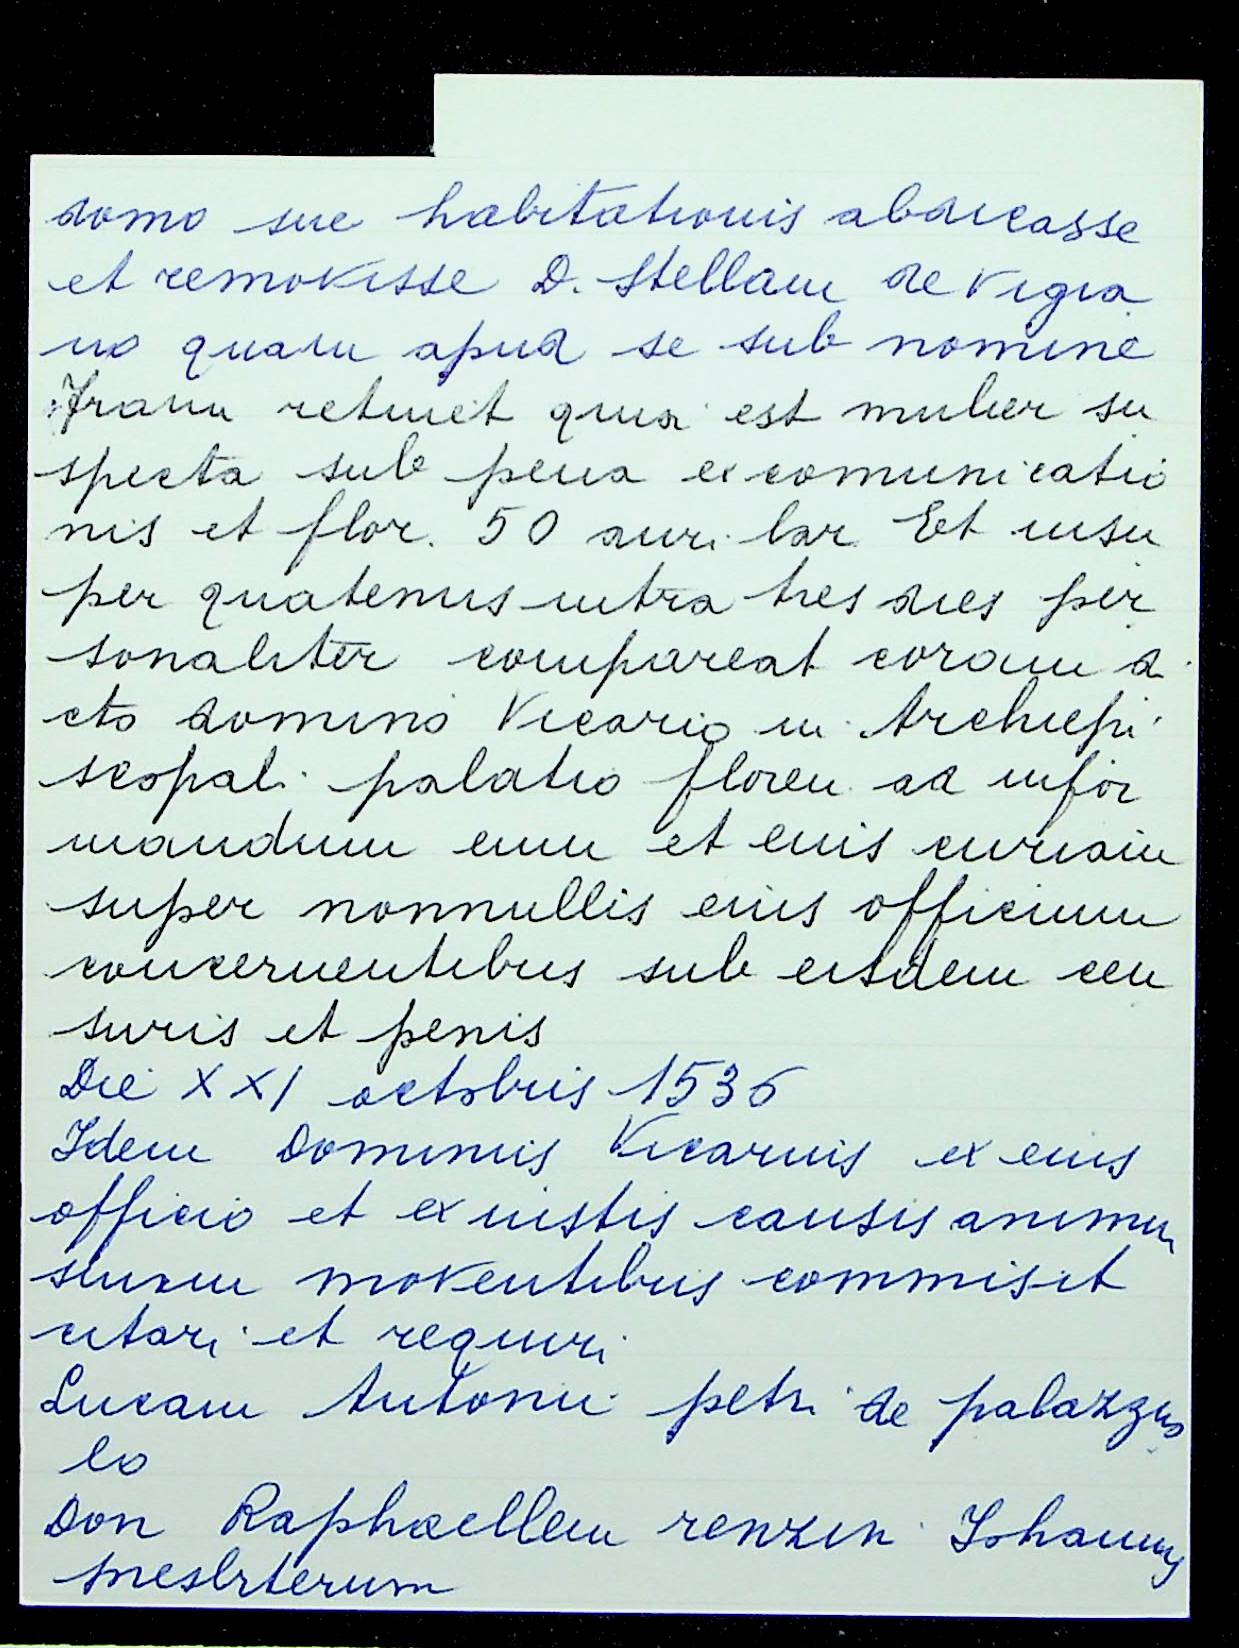 domo sue habitationis abdicasse
et removisse D. Stellam de Vigia
no quam apud se sub nomine
retinet quia est mulier su
specta sub pena excomunicatio
nis et flor. 50 auri lar. Et insu
per quatenus intra tres dies per
sonaliter compareat coram di
cto domino Vicario in Archiepi
scopali palatio floren. ad infor
mandum eum et eius curiam
super nonnullis eius officium
concernentibus sub eisdem cen
suris et penis
Die XXI octobris 1536
Idem Dominus Vicarius ex eius
officio et ex iustis causis animum
suum moventibus commisit
citari et requiri
Lucam Antonii petri de palazzuo
lo
Don Raphaellem renzin Johannis
presbiterum